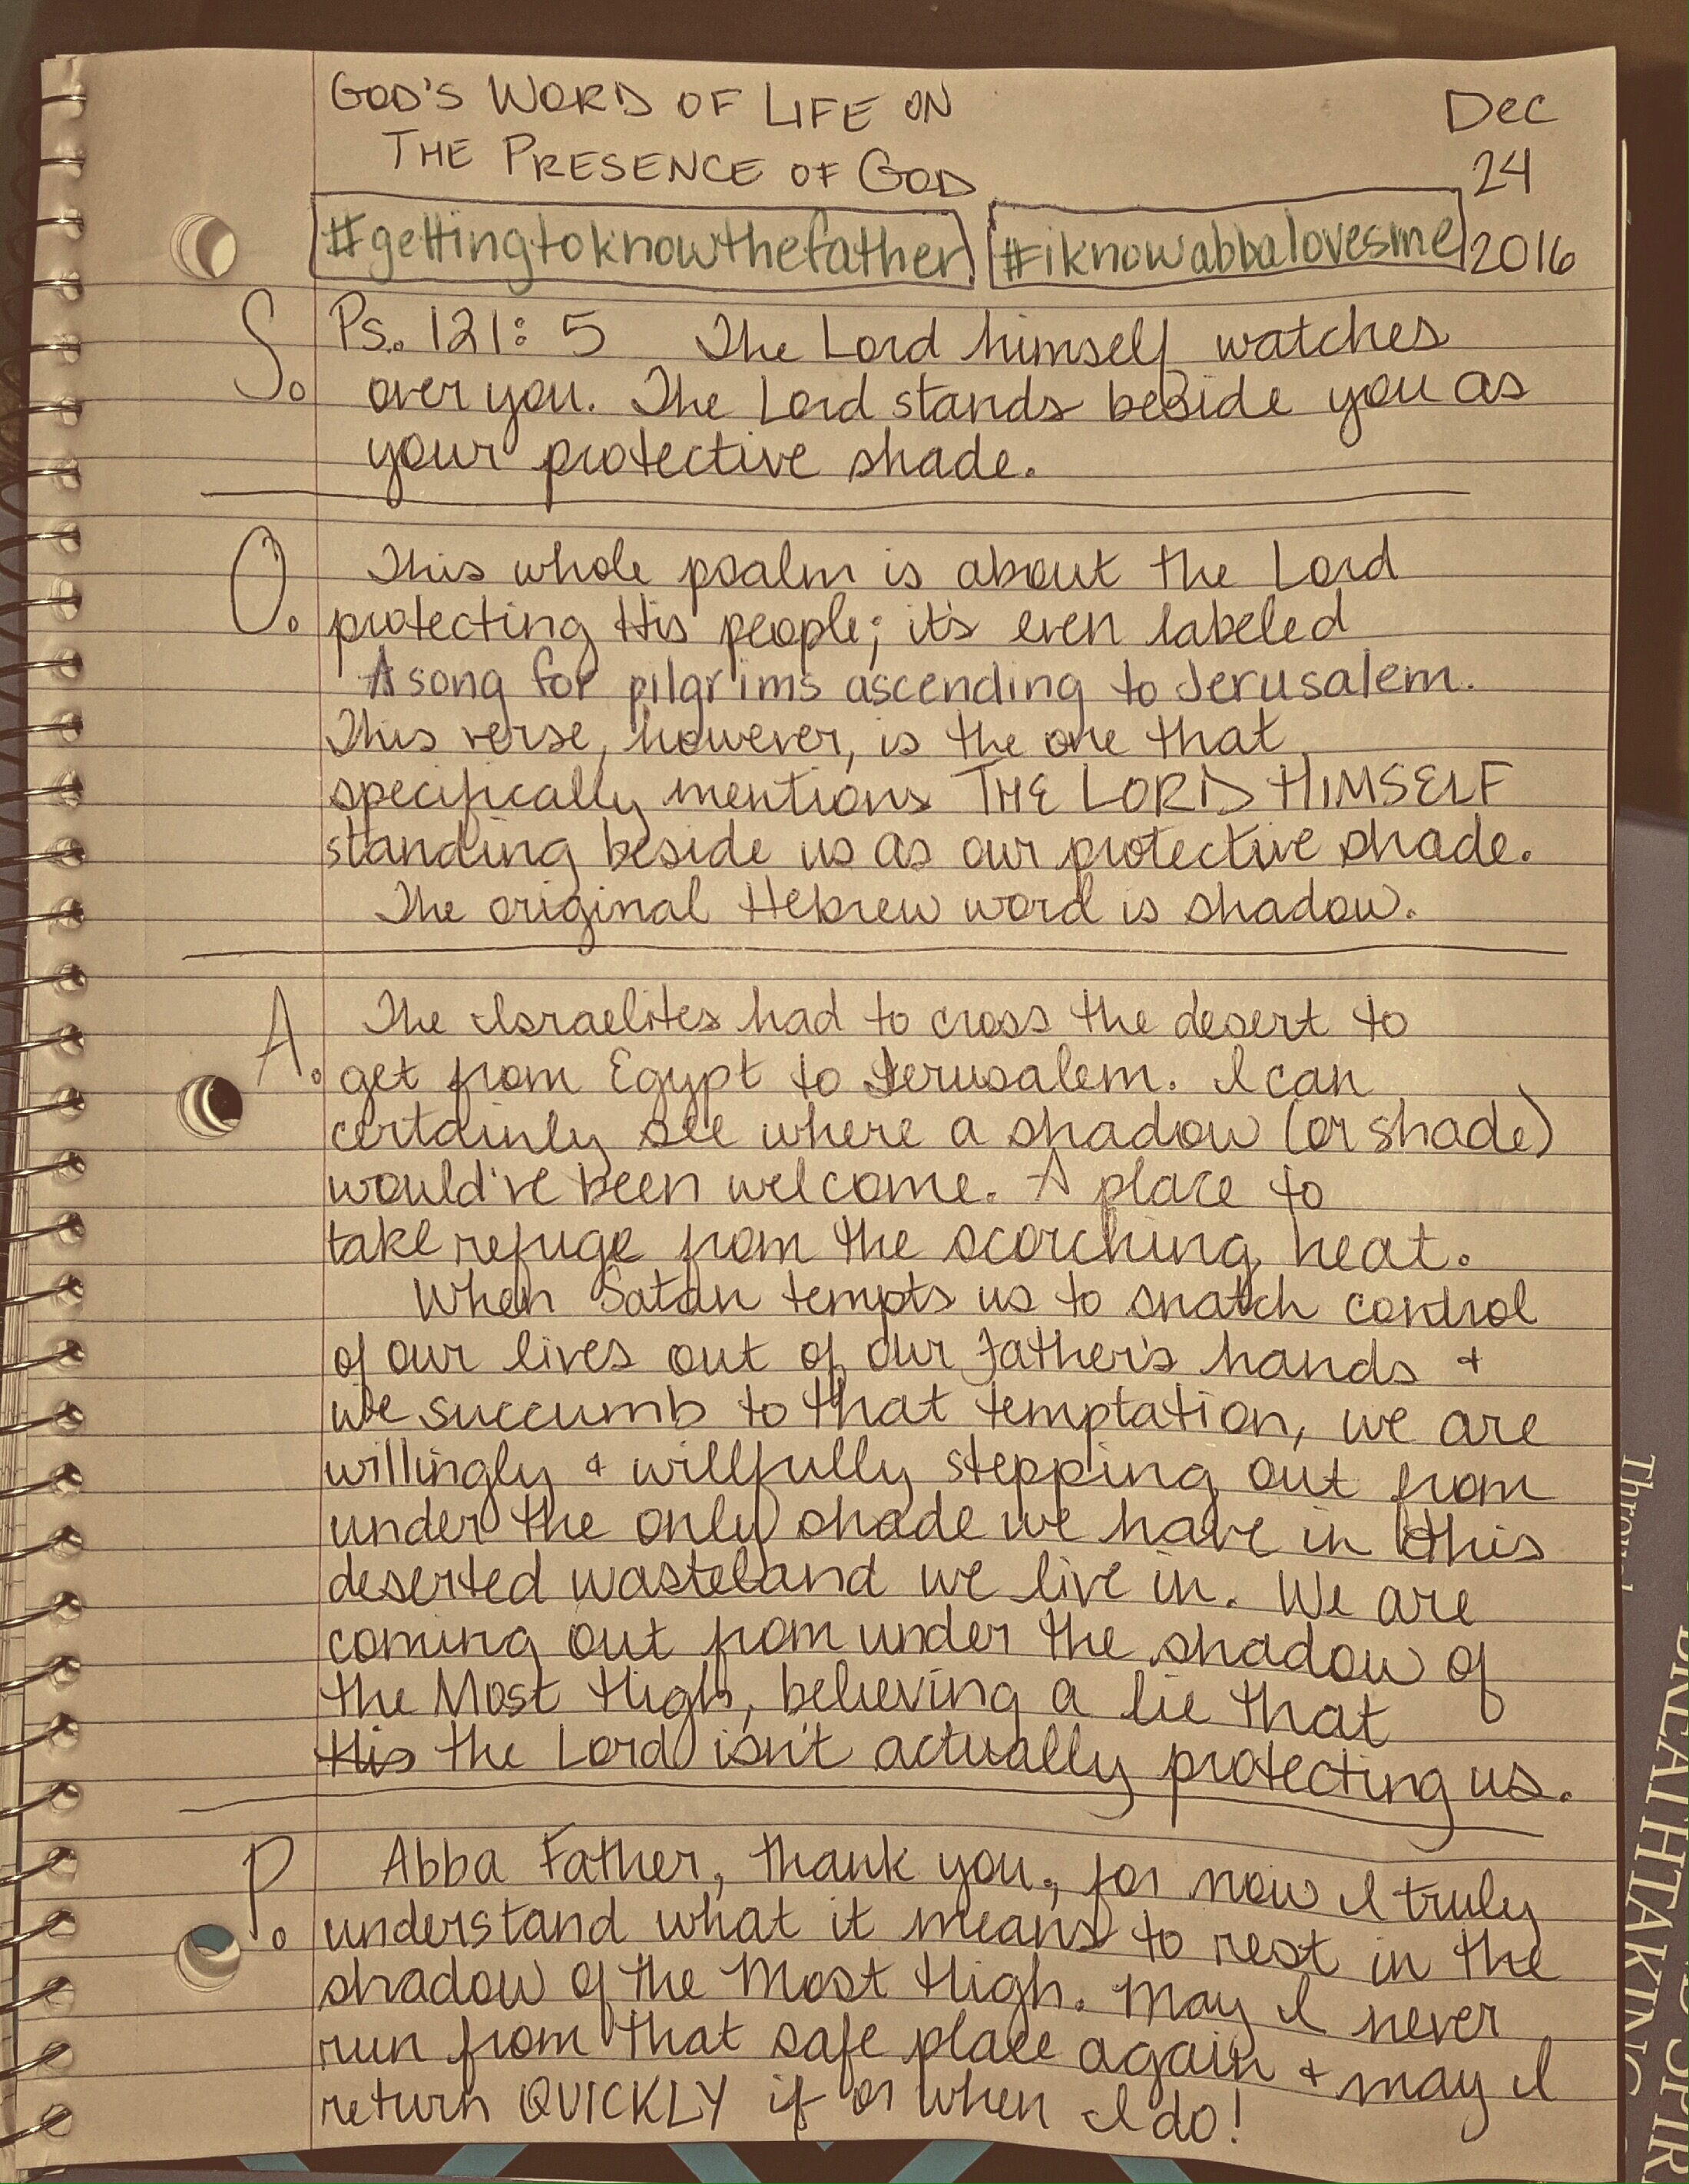 GOD'S WORD OF LIFE ON
THE PRESENCE OF GOD
Dec
24
2016
#gettingtoknowthefather #iknowabbalovesme
S. Ps. 121:5 The Lord himself watches
over you. The Lord stands beside you as
your protective shade.
O. This whole psalm is about the Lord
protecting His people; it's even labeled
A song for pilgrims ascending to Jerusalem.
This verse, however, is the one that
specifically mentions THE LORD HIMSELF
standing beside us as our protective shade.
The original Hebrew word is shadow.
A. The Israelites had to cross the desert to
get from Egypt to Jerusalem. I can
certainly see where a shadow (or shade)
would've been welcome. A place to
take refuge from the scorching heat.
When Satan tempts us to snatch control
of our lives out of our Father's hands +
we succumb to that temptation, we are
willingly & willfully stepping out from
under the only shade we have in this
deserted wasteland we live in. We are
coming out from under the shadow of
the Most High, believing a lie that
His the Lord isn't actually protecting us.
P. Abba Father, thank you, for now I truly
understand what it means to rest in the
shadow of the Most High. May I never
run from that safe place again + may I
return QUICKLY if or when I do!
BREATHTAKING